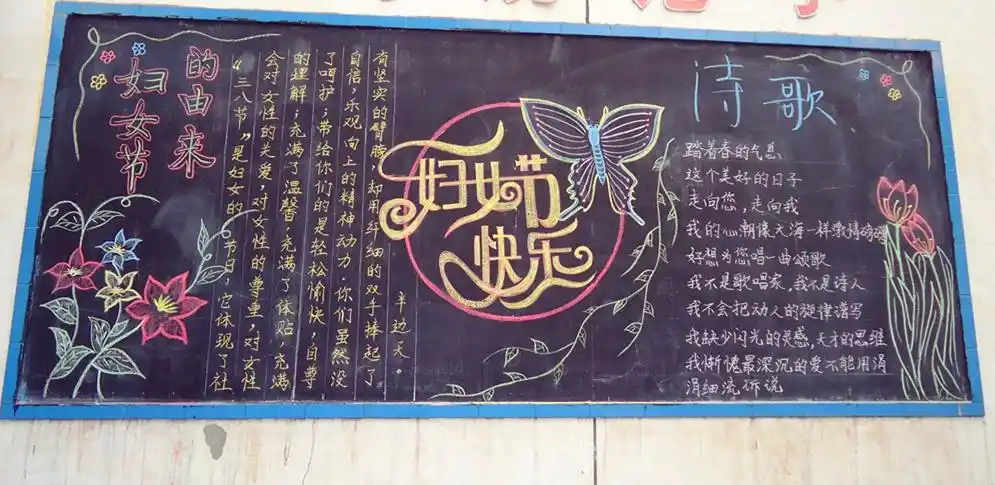 妇女节
的由来
“三八节”是妇女的节日,它体现了社
会对女性的关爱,对女性的尊重,对女性
的理解;充满了温馨,充满了体贴,充满
了呵护;带给你们的是轻松愉快,自尊
自信,乐观向上的精神动力.你们虽然没
有坚实的臂膀,却用纤细的双手捧起了
半边天。
妇女节
快乐
诗歌
踏着春的气息
这个美好的日子
走向您,走向我
我的心潮像大海一样激情磅礴
好想为您唱一曲颂歌
我不是歌唱家,我不是诗人
我不会把动人的旋律谱写
我缺少闪光的灵感,天才的思维
我惭愧最深沉的爱不能用涓
涓细流诉说